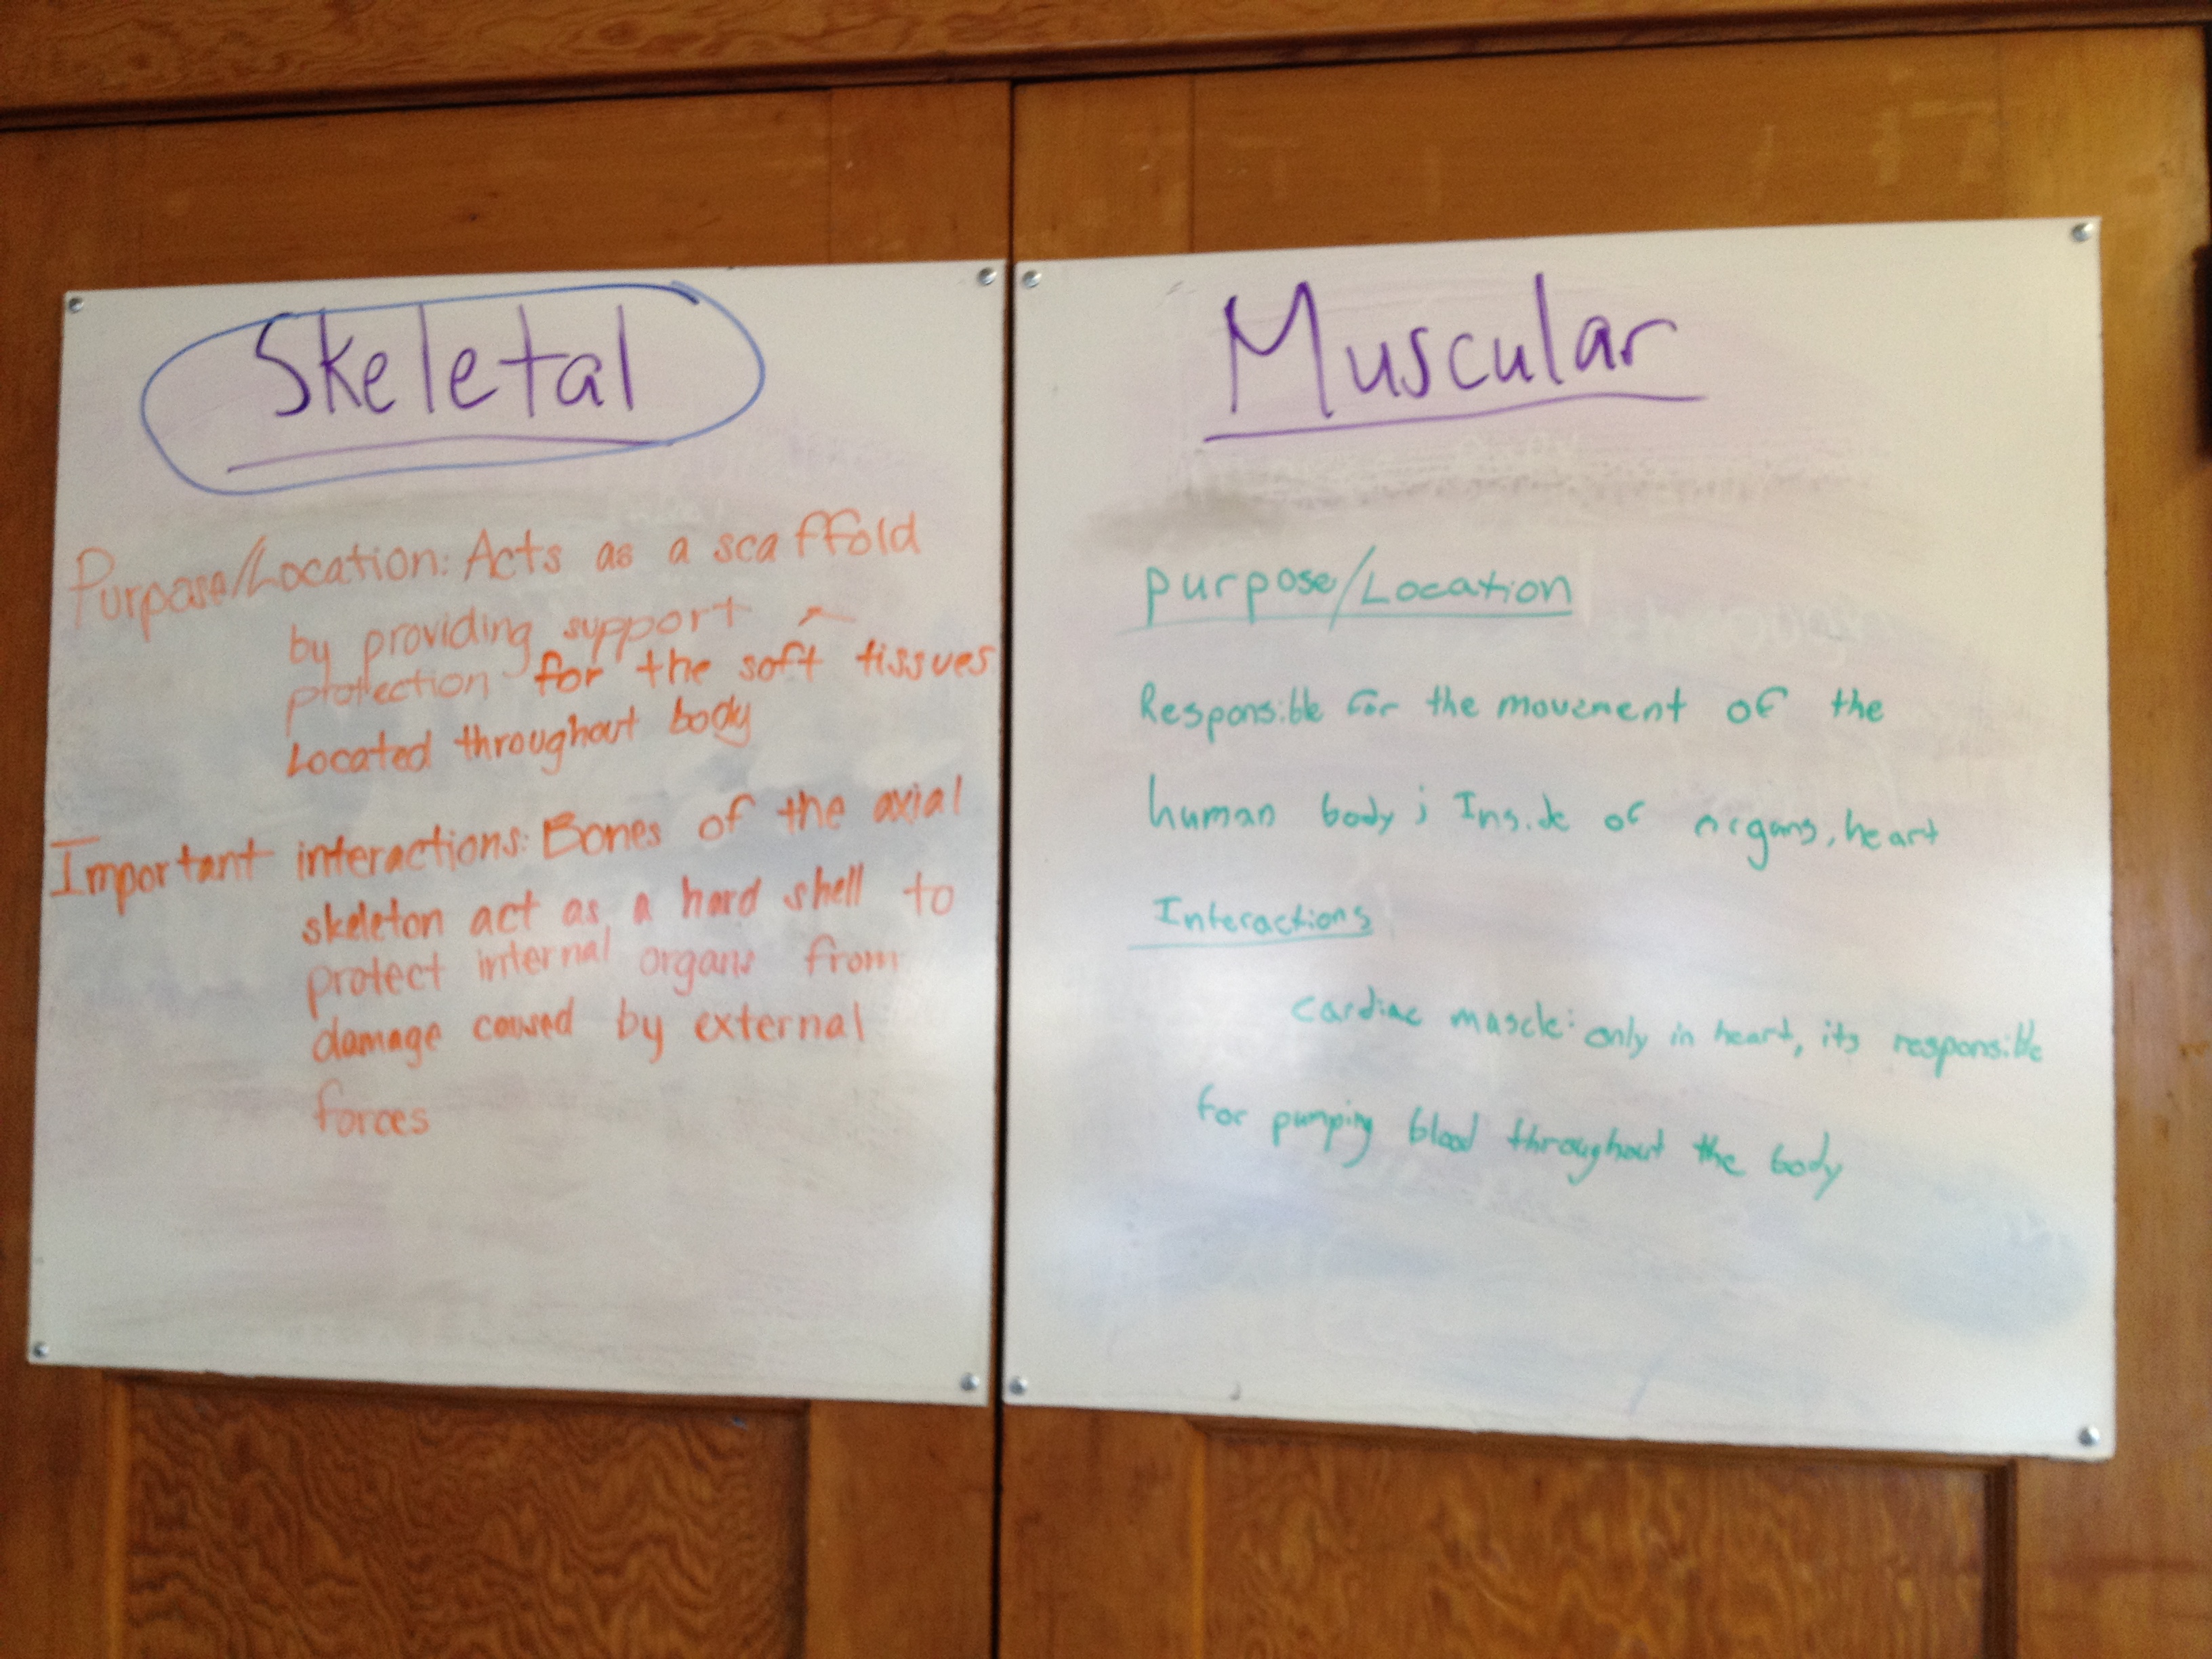 Skeletal
Purpose/Location: Acts as a scaffold
by providing support
protection for the soft tissues
Located throughout body
Important interactions: Bones of the axial
skeleton act as a hard shell to
protect internal organs from
damage caused by external
forces
Muscular
purpose/Location
Responsible for the movement of the
human body; Inside of organs, heart
Interactions
cardiac muscle: only in heart, its responsible
for pumping blood throughout the body